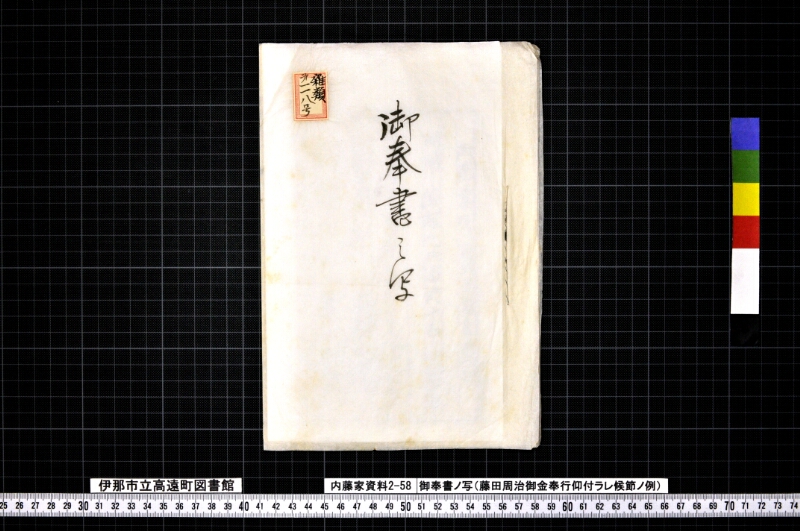 雑類
第二一八号
御奉書之写
伊那市立高遠町図書館
内藤家資料2-58
御奉書ノ写(藤田周治御金奉行仰付ラレ候節ノ例)
25 26 27 28 29 30 31 32 33 34 35 36 37 38 39 40 41 42 43 44 45 46 47 48 49 50 51 52 53 54 55 56 57 58 59 60 61 62 63 64 65 66 67 68 69 70 71 72 73 74